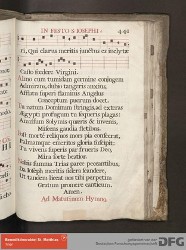 IN FESTO S. IOSEPHI.
442
ri, Qui clarus meritis junctus es inclytæ
Casto foedere Virgini.
Almo cum tumidam germine conjugem
Admirans, dubio tangeris anxius,
Afflatu superi flaminis Angelus
Conceptum puerum docet.
Tu natum Dominum stringis, ad exteras
Ægypti profugum tu sequeris plagas:
Amissum Solymis quæris & invenis,
Miscens gaudia fletibus.
Post mortem reliquos mors pia consecrat,
Palmamque emeritos gloria suscipit:
Tu vivens superis par frueris Deo,
Mira sorte beatior.
Nobis summa Trias parce precantibus,
Da Joseph meritis sidera scandere,
Ut tandem liceat nos tibi perpetim
Gratum promere canticum.
Amen.
Ad Matutinum Hymnus.
DFG